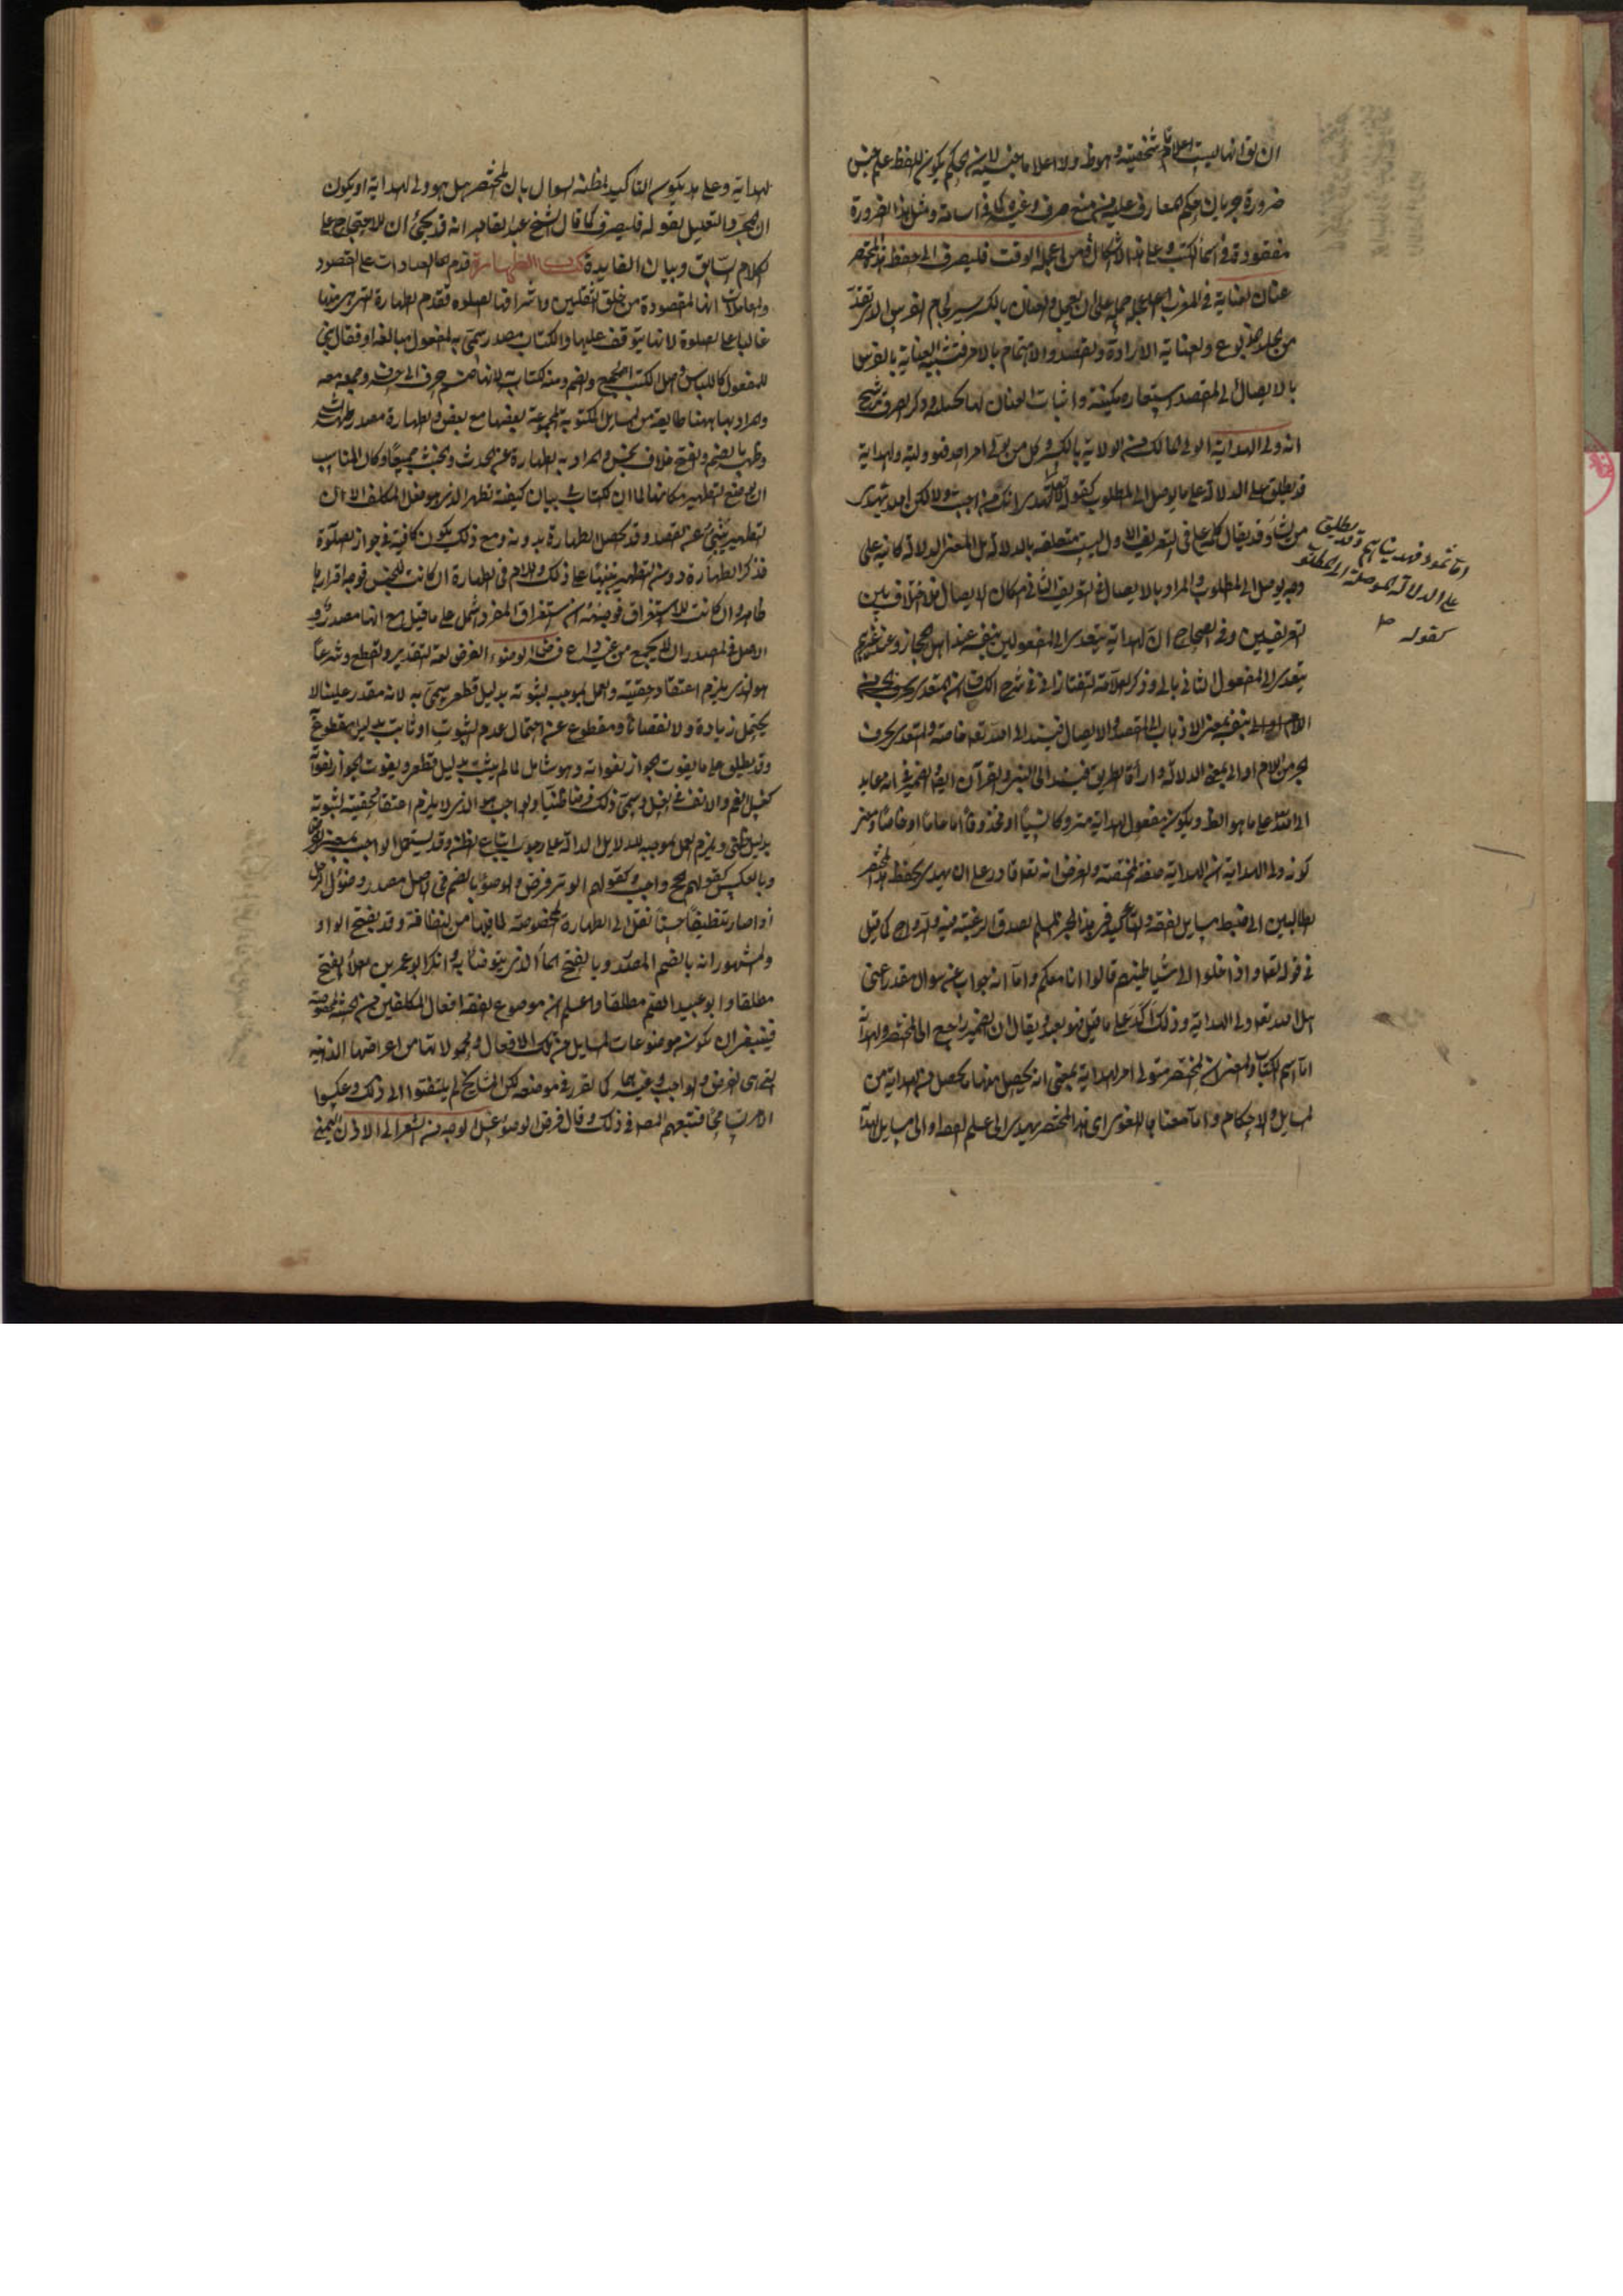 ان يق انها ليست اعلاما شخصية وهو ظ ولا اعلاما جنسية لانه يحكم بكون اللفظ علم جنس
ضرورة جريان حكم المعارف عليه من منع صرف وغيره كما في اسامة ومثل هذا الضرورة
مفقودة في اسماء الكتب وعلى هذا الاشكال فمن اعجله الوقت فليصرف الى حفظ هذا المختصر
عنان العناية في المغرب اعجله حمله على ان يعجل والعنان بالكسر سير لجام الفرس الذي تقد
من جلد مدبوغ والعناية الارادة والقصد والاهتمام بالامر فتشبيه العناية بالفرس
بالايصال الى المقصد استعارة مكنية واثبات العنان لها تخييلية وذكر الصرف ترشيح
انه ولي الهداية الولي المالك من الولاية بالكسر وكل من ولي امر احد فهو وليه والهداية
قد يطلق على الدلالة على ما يوصل الى المطلوب كقوله تعالى انك لا تهدي من احببت ولكن الله يهدي
من يشاء وقد يقال كلمة على في التعريف الاول ليست متعلقة بالدلالة بل المعنى الدلالة كائنة على
وجه يوصل الى المطلوب والمراد بالايصال في التعريف الثاني امكان الايصال فلا خلاف بين
التعريفين وفي الصحاح ان الهداية يتعدى الى المفعولين بنفسه عند اهل الحجاز وعند غيرهم
يتعدى الى المفعول الثاني بالى وذكر العلامة التفتازاني في شرح الكشاف ان المتعدى بحرف الجر من
بنفسه بمعنى الاذهاب الى المقصد والايصال فيسند الى الله تعالى خاصة والمتعدى بحرف
الجر من اللام او الى بمعنى الدلالة وارآءة الطريق فيسند الى النبي والقرآن ايضا والضمير في انه عايد
الى الله على ما هو الظ ويكون مفعول الهداية متروكا نسيا او محذوفا اما عاما او خاصا ومعنى
كونه ولي الهداية ان الهداية صفة مختصة والغرض انه تعالى قادر على ان يهدي بحفظ المختصر
الطالبين الى ضبط مسايل الفقه والتأكيد في هذا الخبر المسلم لصدق الرغبة فيه والرواج كما قيل
في قوله تعالى واذا خلوا الى شياطينهم قالوا انا معكم واما انه جواب عن سوال مقدر اعني
هل الله تعالى ولي الهداية وذلك اكد على ما قيل فهو بعيد ويقال ان الضمير راجع الى المختصر والهداية
اما اسم الكتاب والمعنى ان المختصر متولي امر الهداية بمعنى انه يحصل منه ما يحصل من الهداية من
المسايل والاحكام واما معناها اللغوي اي هذا المختصر يهدي الى علم الفقه او الى مسايل الهداية
اما ثمود فهديناهم وقد يطلق
على الدلالة الموصلة الى المطلوب
كقوله
الهداية وعلى هذا يكون التاكيد لمظنة السوال بان المختصر هل هو ولي الهداية او يكون
ان لمجرد التعليل لقوله فليصرف كما قال الشيخ عبد القاهر انه قد يجئ ان للاحتجاج على
الكلام السابق وبيان الفايدة كتاب الطهارة قدم العبادات على
والمعاملات لانها المقصودة من خلق الثقلين واشرافها الصلوة فقدم الطهارة التي هي شرط
غالبا على الصلوة لانها يتوقف عليها والكتاب مصدر سمي به المفعول مبالغة او فعال بني
للمفعول كاللباس واصل الكتب الجمع والضم ومنه الكتابة لانها ضم حرف الى حرف وجمعه معه
والمراد بها ههنا طايفة من المسايل المكتوبة المجموعة بعضها مع بعض والطهارة مصدر طهر الشئ
وطهر بالضم والفتح خلاف نجس والمراد به الطهارة عن الحدث والخبث جميعا وكان المناسب
ان يوضع التطهير مكانها لما ان الكتاب في بيان كيفية تطهر الذي هو فعل المكلف الا ان
التطهير ينبئ عن القصد وقد يحصل الطهارة بدونه ومع ذلك يكون كافية في جواز الصلوة
فذكر الطهارة دون التطهير تنبيها على ذلك واللام في الطهارة ان كانت للجنس فوجه افرادها
ظاهر وان كانت للاستغراق فوجهه ان استغراق المفرد اشمل على ما قيل مع انها مصدر و
الاصل في المصدر ان لا يجمع من غير داع فرض الوضوء الفرض لغة التقدير والقطع وشرعا
هو الذي يلزم اعتقاد حقيته والعمل بموجبه لثبوته بدليل قطعي سمي به لانه مقدر علينا لا
يحتمل زيادة ولا نقصانا ومقطوع عنه احتمال عدم الثبوت او ثابت بدليل مقطوع
وقد يطلق على ما يفوت الجواز بفواته وهو شامل لما لم يثبت بدليل قطعي ويفوت الجواز بفواته
كغسل الفم والانف في الغسل وسمي ذلك فرضا ظنيا والواجب هو الذي لا يلزم اعتقاد حقيته لثبوته
بدليل ظني ويلزم العمل بموجبه للدلايل الدالة على وجوب اتباع الظن وقد يستعمل الواجب بمعنى الفرض
وبالعكس كقولهم الحج واجب وكقولهم الوتر فرض والوضوء بالضم في الاصل مصدر وضؤ الرجل
اذا صار نظيفا حسنا نقل الى الطهارة المخصوصة لما فيها من النظافة وقد يفتح الواو
والمشهور انه بالضم المصدر وبالفتح الماء الذي يتوضأ به وانكر ابو عمرو بن العلاء الفتح
مطلقا وابو عبيد الضم مطلقا واعلم ان موضوع الفقه افعال المكلفين من حيثية مخصوصة
فينبغي ان يكون موضوعات المسايل من تلك الافعال ومحمولاتها من اعراضها الذاتية
التي هي الفرض والواجب وغيرهما كما تقرر في موضعه لكن المشايخ لم يلتفتوا الى ذلك وعكسوا
الامر تسامحا فتبعهم المص في ذلك وقال فرض الوضوء غسل الوجه من الشعر الى الاذن اليمنى